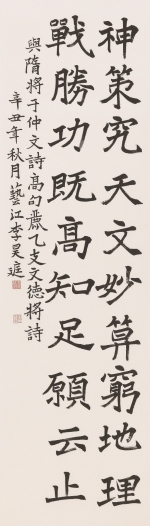 神策究天文妙算窮地理
戰勝功旣高知足願云止
與隋將于仲文詩高句麗乙支文德將詩
辛丑年秋月藝江李昊庭